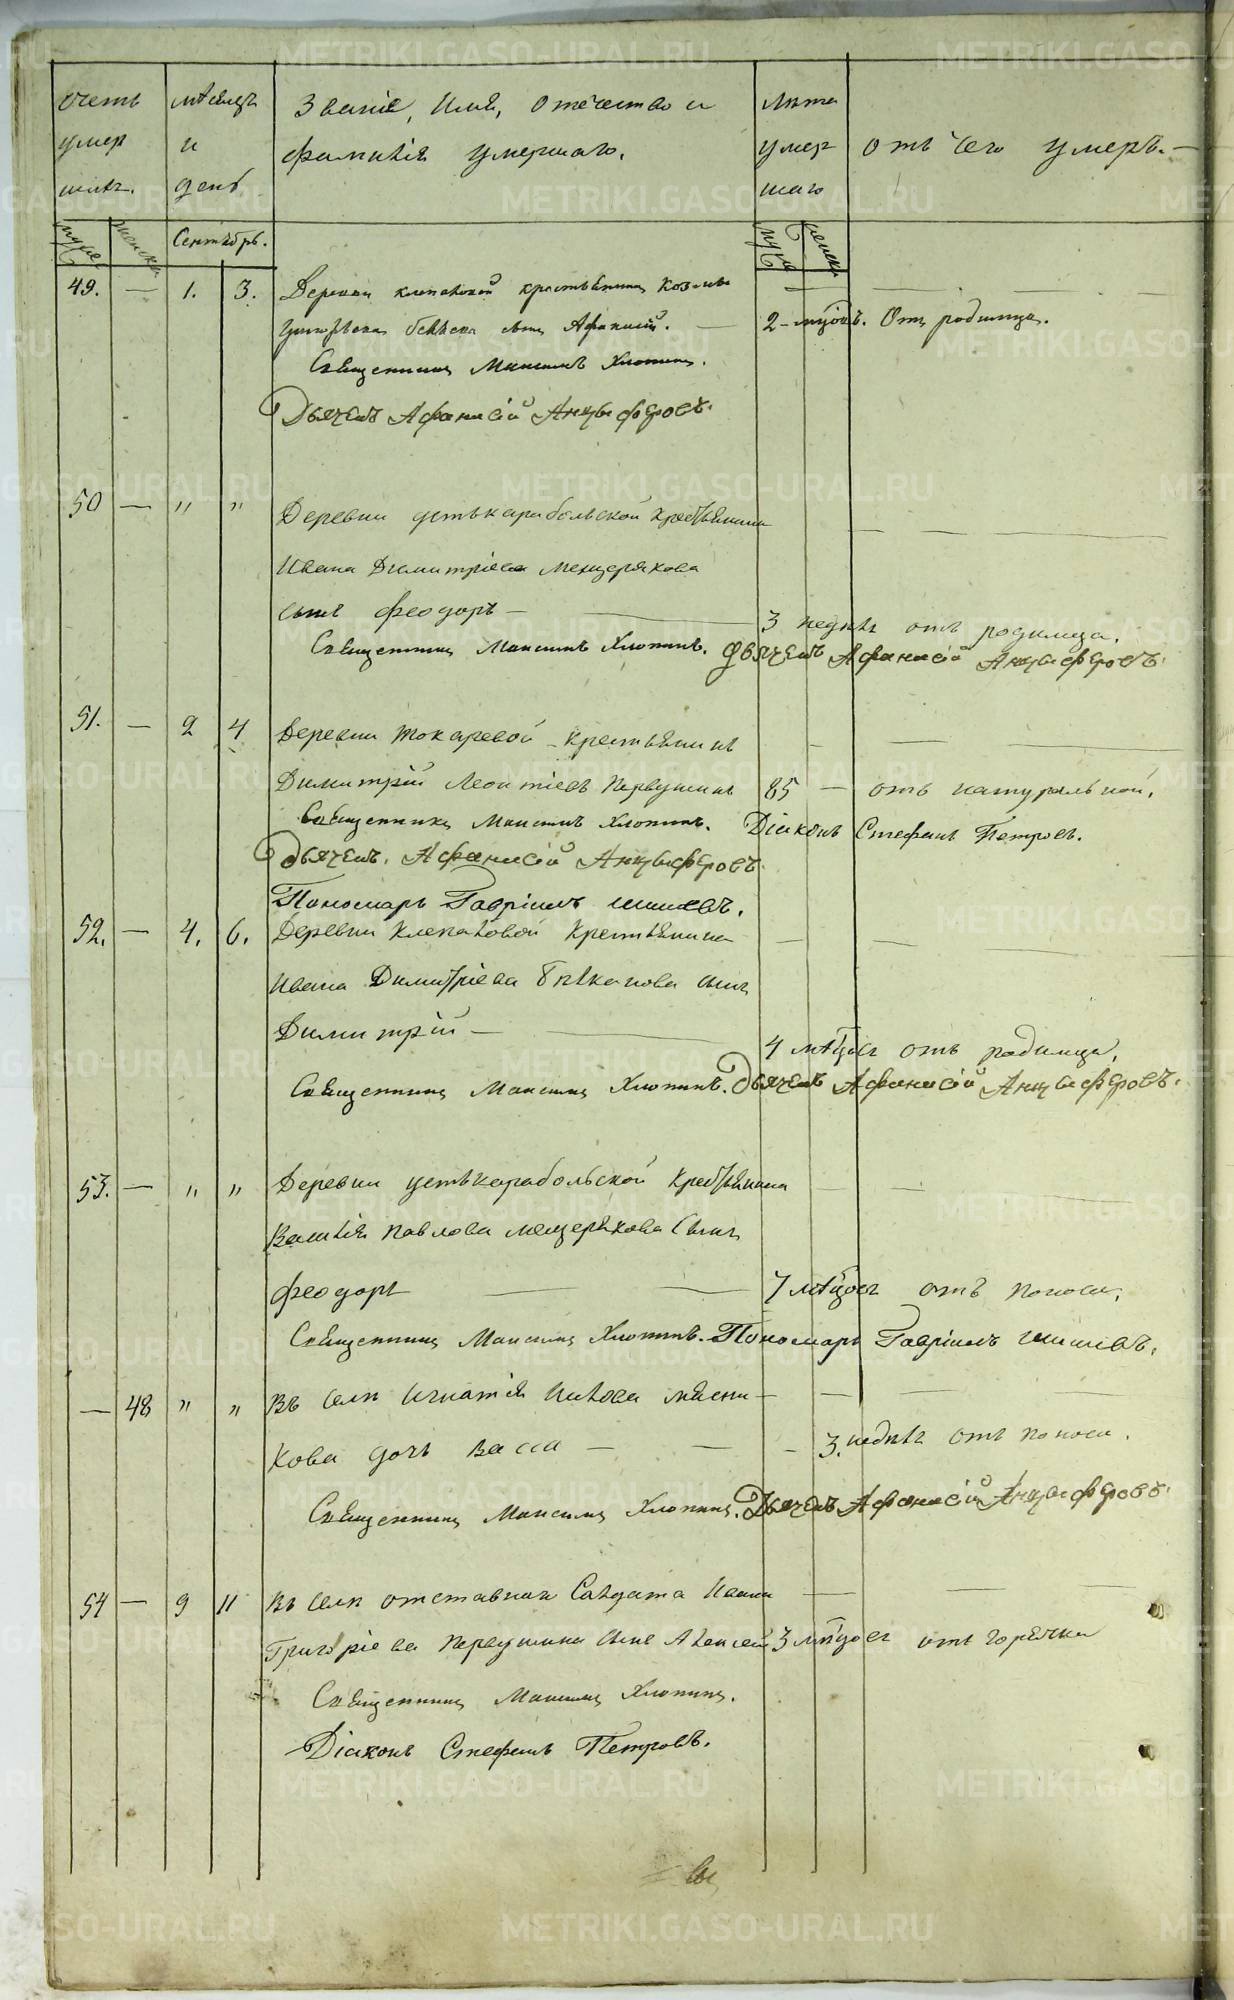 счетъ мѣсяцъ Званіе, Имя, отечество и лѣта
умер и фамилія умершаго. умер отъ чего умеръ.
шихъ. день шаго
муже женска Сентябрь. муже женска
49. — 1. 3. Деревни клепаковой крестьянина Козьмы
Григорьева сынъ Афанасій. — 2 - мѣсяцъ. Отъ родимца.
Священникъ Максимъ Хлопинъ.
Дьячекъ Афанасій Анцыферовъ.
50 — " " Деревни устькарабольской крестьянина
Ивана Димитріева Мещерякова
сынъ Феодоръ — 3 недѣль отъ родимца.
Священникъ Максимъ Хлопинъ. Дьячекъ Афанасій Анцыферовъ.
51. — 2 4 Деревни токаревой крестьянинъ
Димитрій Леонтіевъ Первушинъ 85 — отъ натуральной.
Священникъ Максимъ Хлопинъ. Діаконъ Стефанъ Петровъ.
Дьячекъ. Афанасій Анцыферовъ.
Пономарь Гавріилъ Шишевъ.
52. — 4. 6. Деревни Клепаковой Крестьянина
Ивана Димитріева сынъ
Димитрій — 4 мѣсяцъ отъ родимца.
Священникъ Максимъ Хлопинъ. Дьячекъ Афанасій Анцыферовъ.
53. — " " Деревни устькарабольской Крестьянина
Василія Павлова мещерякова сынъ
Феодоръ — 7 мѣсяцъ отъ поноса.
Священникъ Максимъ Хлопинъ. Пономарь Гавріилъ Шишевъ.
— 48 " " Въ селѣ Игнатія мясни
кова дочь Васса — — - 3. недѣль отъ поноса.
Священникъ Максимъ Хлопинъ. Дьячекъ Афанасій Анцыферовъ.
54 — 9 11 Въ селѣ отставнаго Салдата Ивана
Григоріева Первушина сынъ Алексей 3 мѣсяцъ отъ горячки
Священникъ Максимъ Хлопинъ.
Діаконъ Стефанъ Петровъ.
METRIKI.GASO-URAL.RU